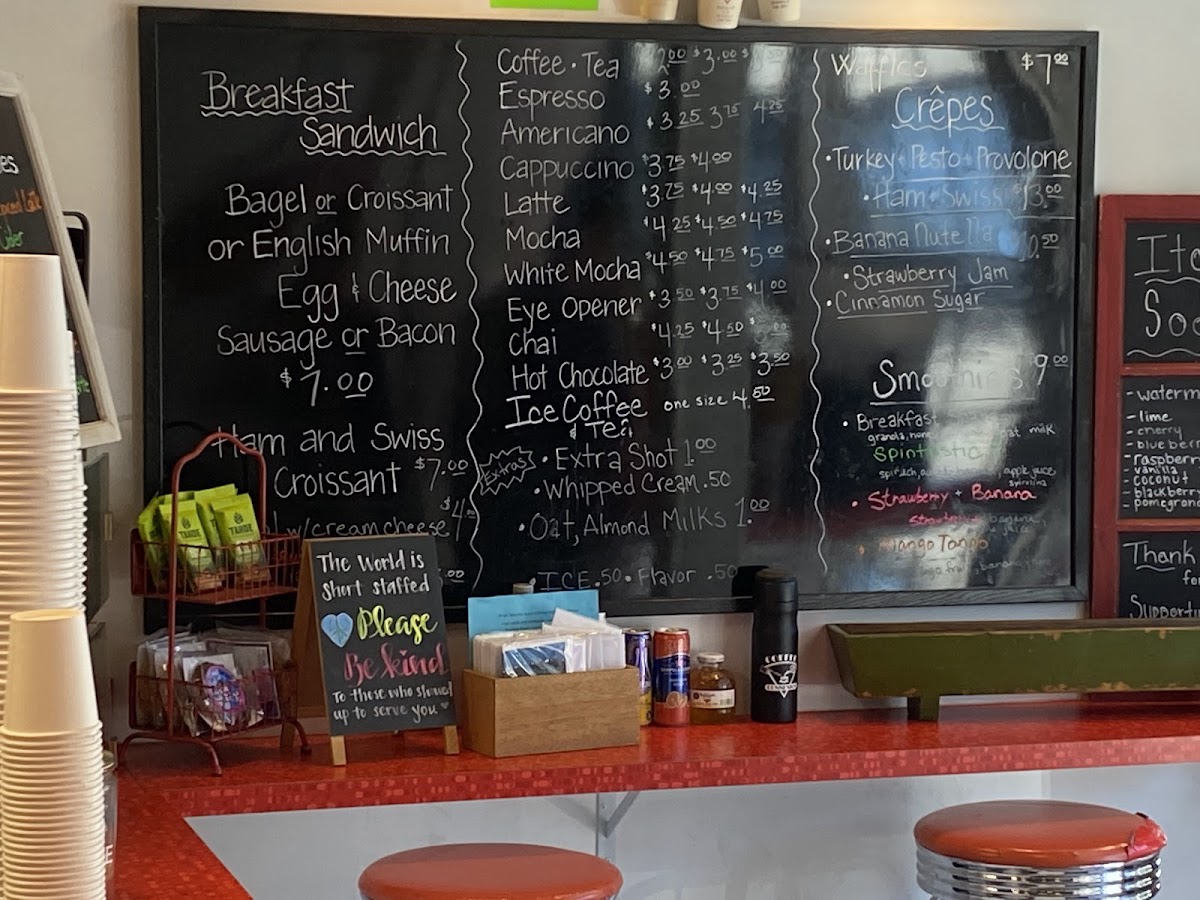 Breakfast
Sandwich
Bagel or Croissant
or English Muffin
Egg & Cheese
Sausage or Bacon
$7.00
Ham and Swiss
Croissant $7.00
w/cream cheese $4.
Coffee • Tea $2.00 $3.00
Espresso $3.00
Americano $3.25 3.75 4.25
Cappuccino $3.75 $4.00
Latte $3.75 $4.00 $4.25
Mocha $4.25 $4.50 $4.75
White Mocha $4.50 $4.75 $5.00
Eye Opener $3.50 $3.75 $4.00
Chai $4.25 $4.50
Hot Chocolate $3.00 $3.25 $3.50
Ice Coffee one size 4.50
& Tea
Extras
• Extra Shot 1.00
• Whipped Cream .50
• Oat, Almond Milks 1.00
• ICE .50 • Flavor .50
Waffles $7.00
Crêpes
• Turkey Pesto Provolone
• Ham Swiss $13.00
• Banana Nutella 10.50
• Strawberry Jam
• Cinnamon Sugar
Smoothies 9.00
• Breakfast
granola, milk
Spintastic
spinach, apple juice
spirulina
• Strawberry + Banana
banana,
juice
• Mango Tango
banana
The World is
Short staffed
Please
Be kind
To those who showed
up to serve you
TAHOE
TAHOE
COFFEE
- waterm
- lime
- cherry
- blueberr
- raspberr
- vanilla
- coconut
- blackberr
- pomegrana
Thank
for
Supporti